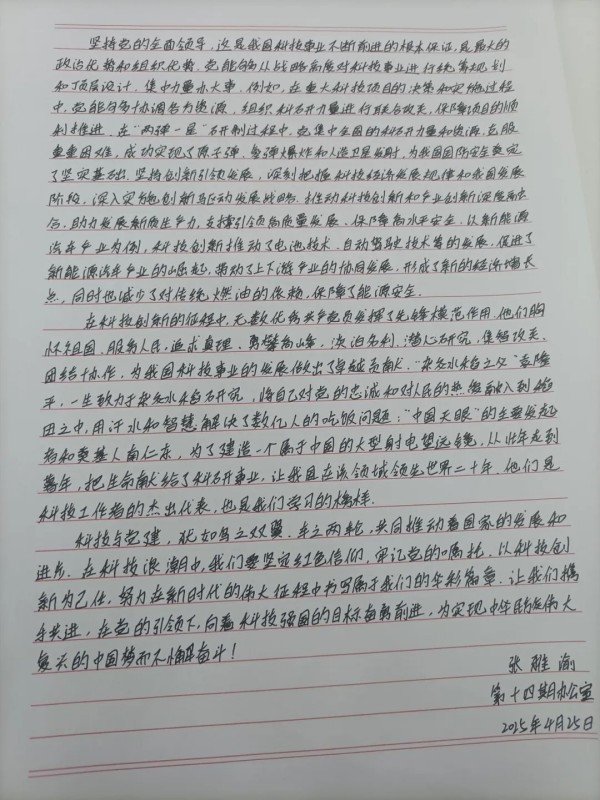 坚持党的全面领导,这是我国科技事业不断前进的根本保证,是最大的
政治优势和组织优势。党能够从战略高度对科技事业进行统筹规划
和顶层设计,集中力量办大事。例如,在重大科技项目的决策和实施过程
中,党能够协调各方资源,组织科研力量进行联合攻关,保障项目的顺
利推进。在“两弹一星”研制过程中,党集中全国的科研力量和资源,克服
重重困难,成功实现了原子弹、氢弹爆炸和人造卫星发射,为我国国防安全奠定
了坚实基础。坚持创新引领发展,深刻把握科技经济发展规律和我国发展
阶段,深入实施创新驱动发展战略,推动科技创新和产业创新深度融
合,助力发展新质生产力,支撑引领高质量发展、保障高水平安全。以新能源
汽车产业为例,科技创新推动了电池技术、自动驾驶技术等的发展,促进了
新能源汽车产业的崛起,带动了上下游产业的协同发展,形成了新的经济增长
点,同时也减少了对传统燃油的依赖,保障了能源安全。
在科技创新的征程中,无数优秀共产党员发挥了先锋模范作用。他们胸
怀祖国、服务人民,追求真理、勇攀高峰,淡泊名利、潜心研究,集智攻关、
团结协作,为我国科技事业的发展做出了卓越贡献。“杂交水稻之父”袁隆
平,一生致力于杂交水稻研究,将自己对党的忠诚和对人民的热爱融入到稻
田之中,用汗水和智慧解决了数亿人的吃饭问题;“中国天眼”的主要发起
者和奠基人南仁东,为了建造一个属于中国的大型射电望远镜,从壮年走到
暮年,把生命献给了科研事业,让我国在该领域领先世界二十年。他们是
科技工作者的杰出代表,也是我们学习的榜样。
科技与党建,犹如鸟之双翼、车之两轮,共同推动着国家的发展和
进步。在科技浪潮中,我们要坚定红色信仰,牢记党的嘱托,以科技创
新为己任,努力在新时代的伟大征程中书写属于我们的华彩篇章。让我们携
手共进,在党的引领下,向着科技强国的目标奋勇前进,为实现中华民族伟大
复兴的中国梦而不懈奋斗!
张雅渝
第十四期办公室
2025年4月25日